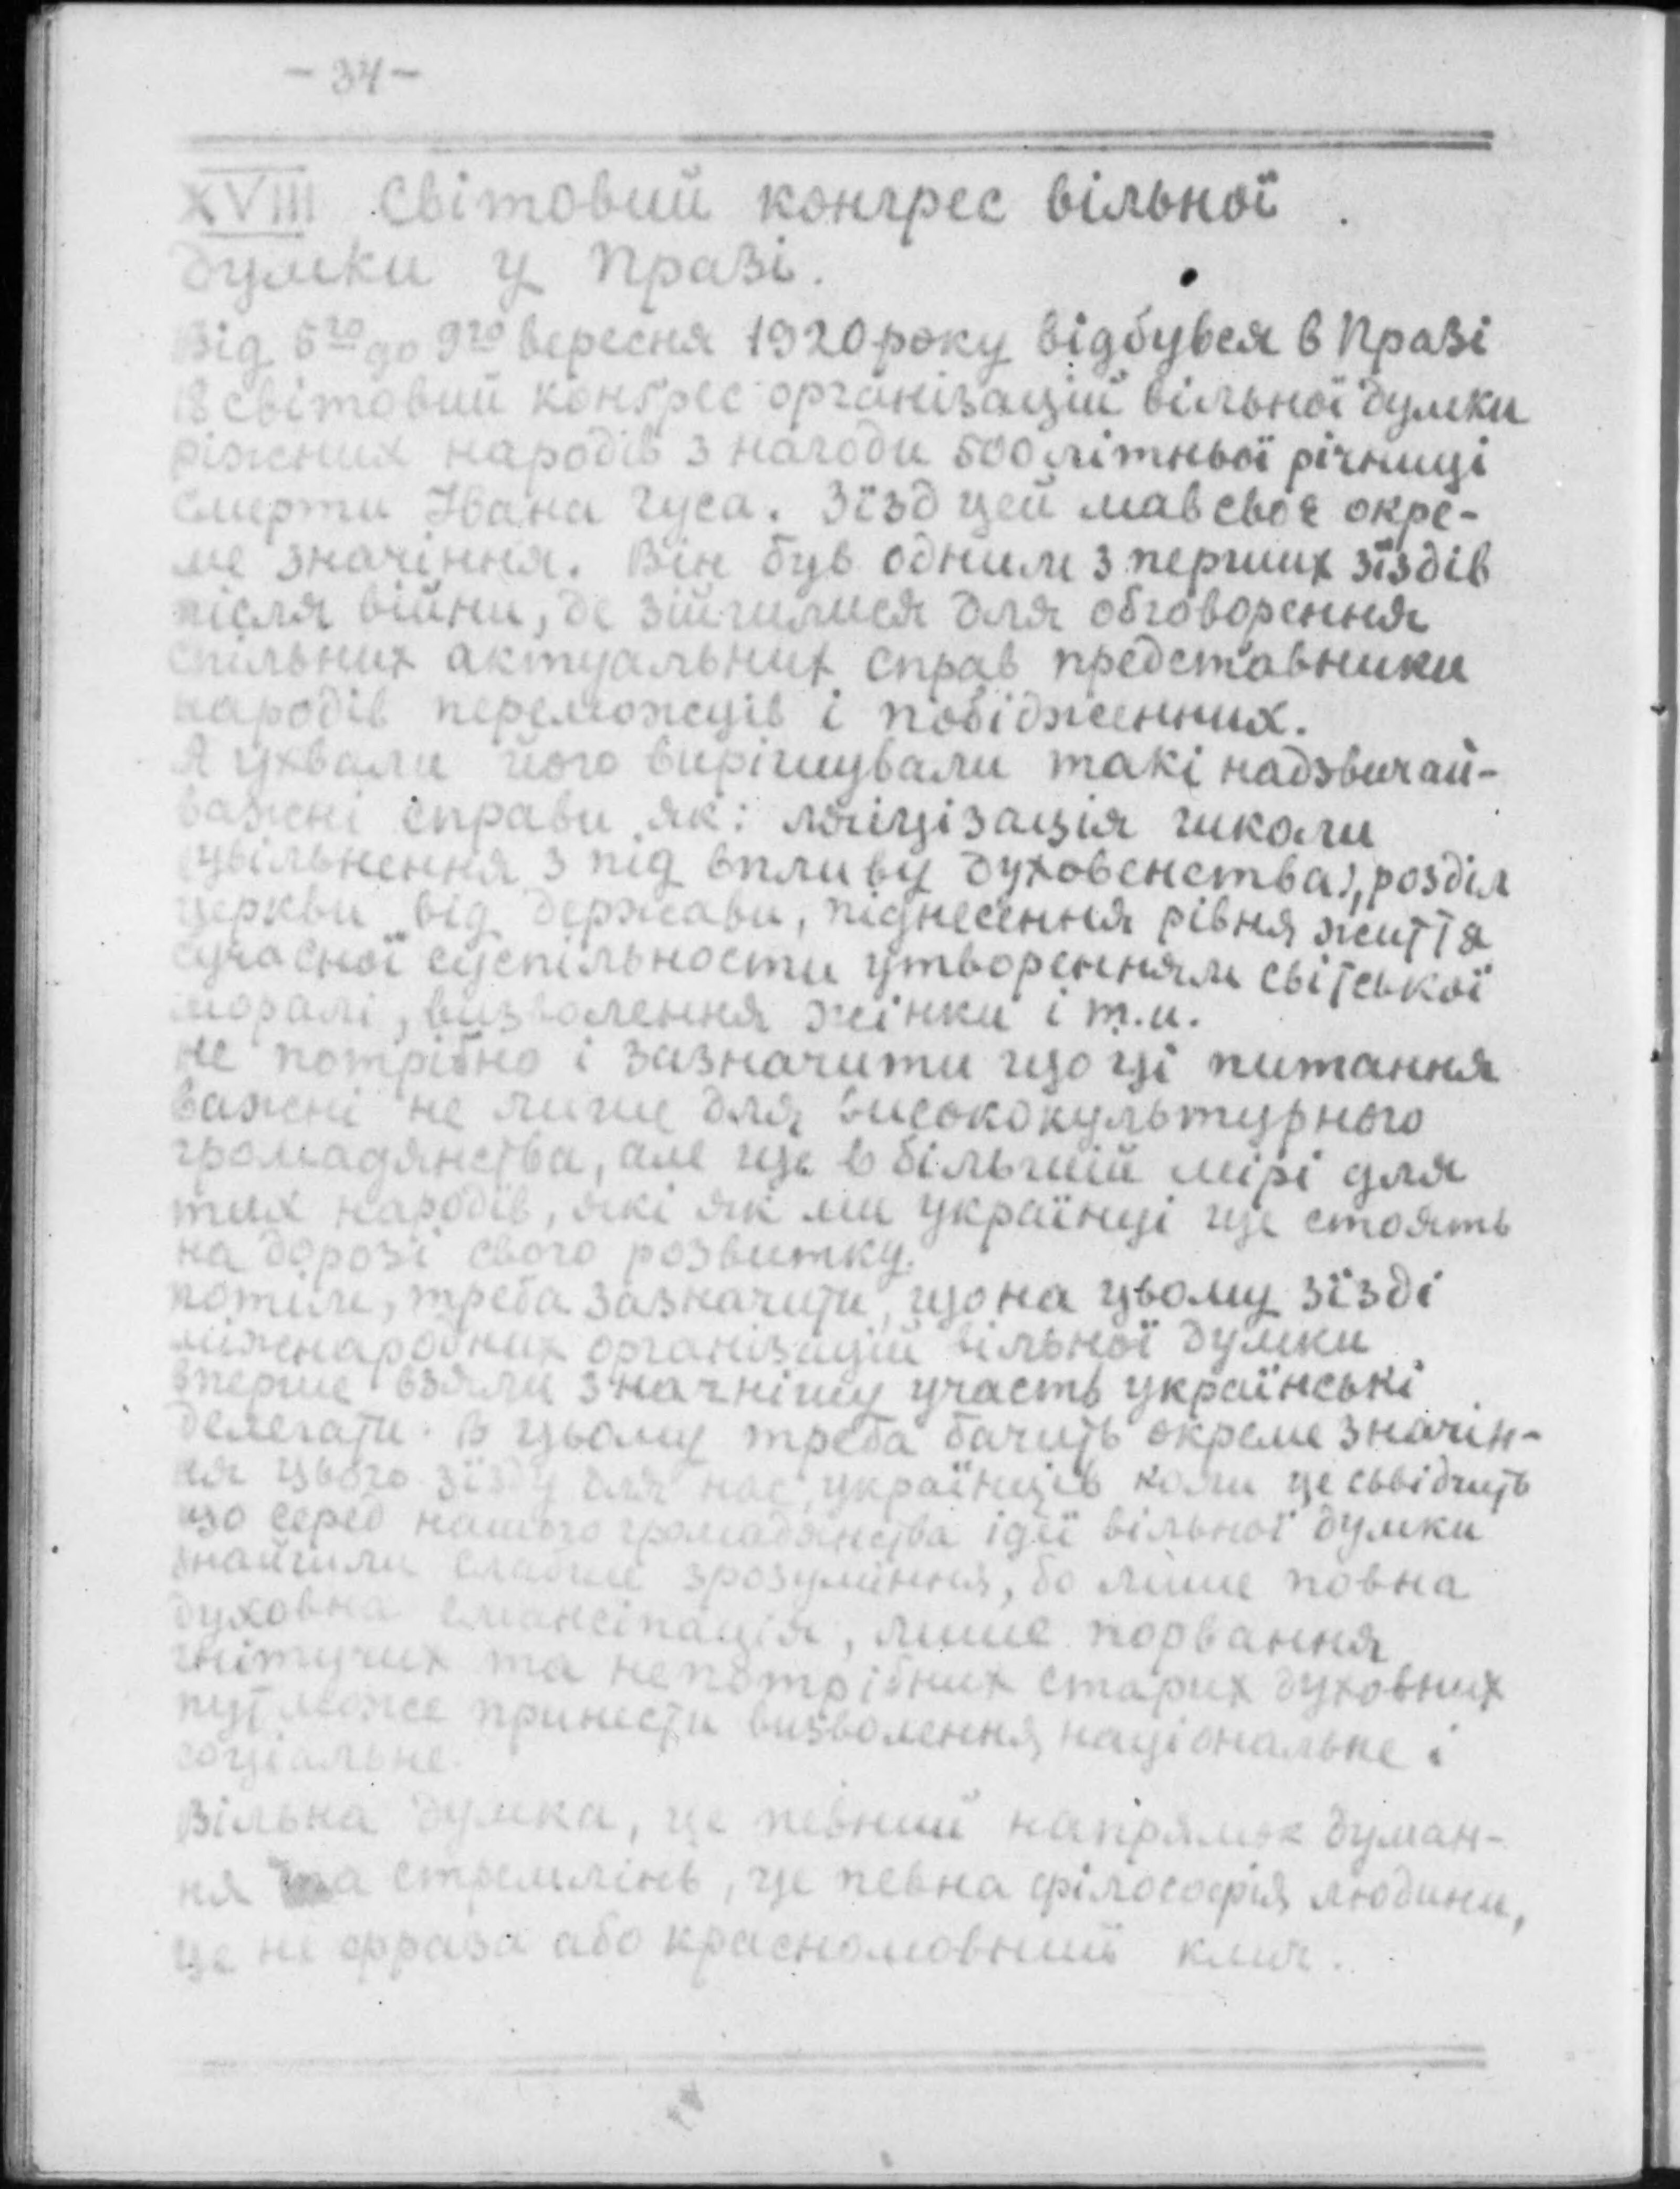 - 34 -
XVIII Світовий конгрес вільної
думки у Празі.
Від 5го до 9го вересня 1920 року відбувся в Празі
18 світовий конґрес організацій вільної думки
ріжних народів з нагоди 500 літньої річниці
смерти Івана Гуса. Зїзд цей мав своє окре-
ме значіння. Він був одним з перших зїздів
після війни, де зійшлися для обговорення
спільних актуальних справ представники
народів переможців і побідженних.
А ухвали його вирішували такі надзвичай-
важні справи як: ляіцізація школи
(увільнення з під впливу духовенства), розділ
церкви від держави, піднесення рівня життя
сучасної суспільности утворенням світської
моралі, визволення жінки і т.и.
Не потрібно і зазначити що ці питання
важні не лише для висококультурного
громадянства, але ще в більшій мірі для
тих народів, які як ми українці ще стоять
на дорозі свого розвитку.
Потім, треба зазначити, що на цьому зїзді
міжнародних організацій вільної думки
вперше взяли значнішу участь українські
делегати. В цьому треба бачить окреме значін-
ня цього зїзду для нас, українців коли це свідчить
що серед нашого громадянства ідеї вільної думки
знайшли слабше зрозуміння, бо лише повна
духовна емансіпація, лише порвання
гнітучих та непотрібних старих духовних
пут може принести визволення національне і
соціальне.
Вільна думка, це певний напрямок думан-
ня та стремлінь, це певна філософія людини,
це не фраза або красномовний клич.